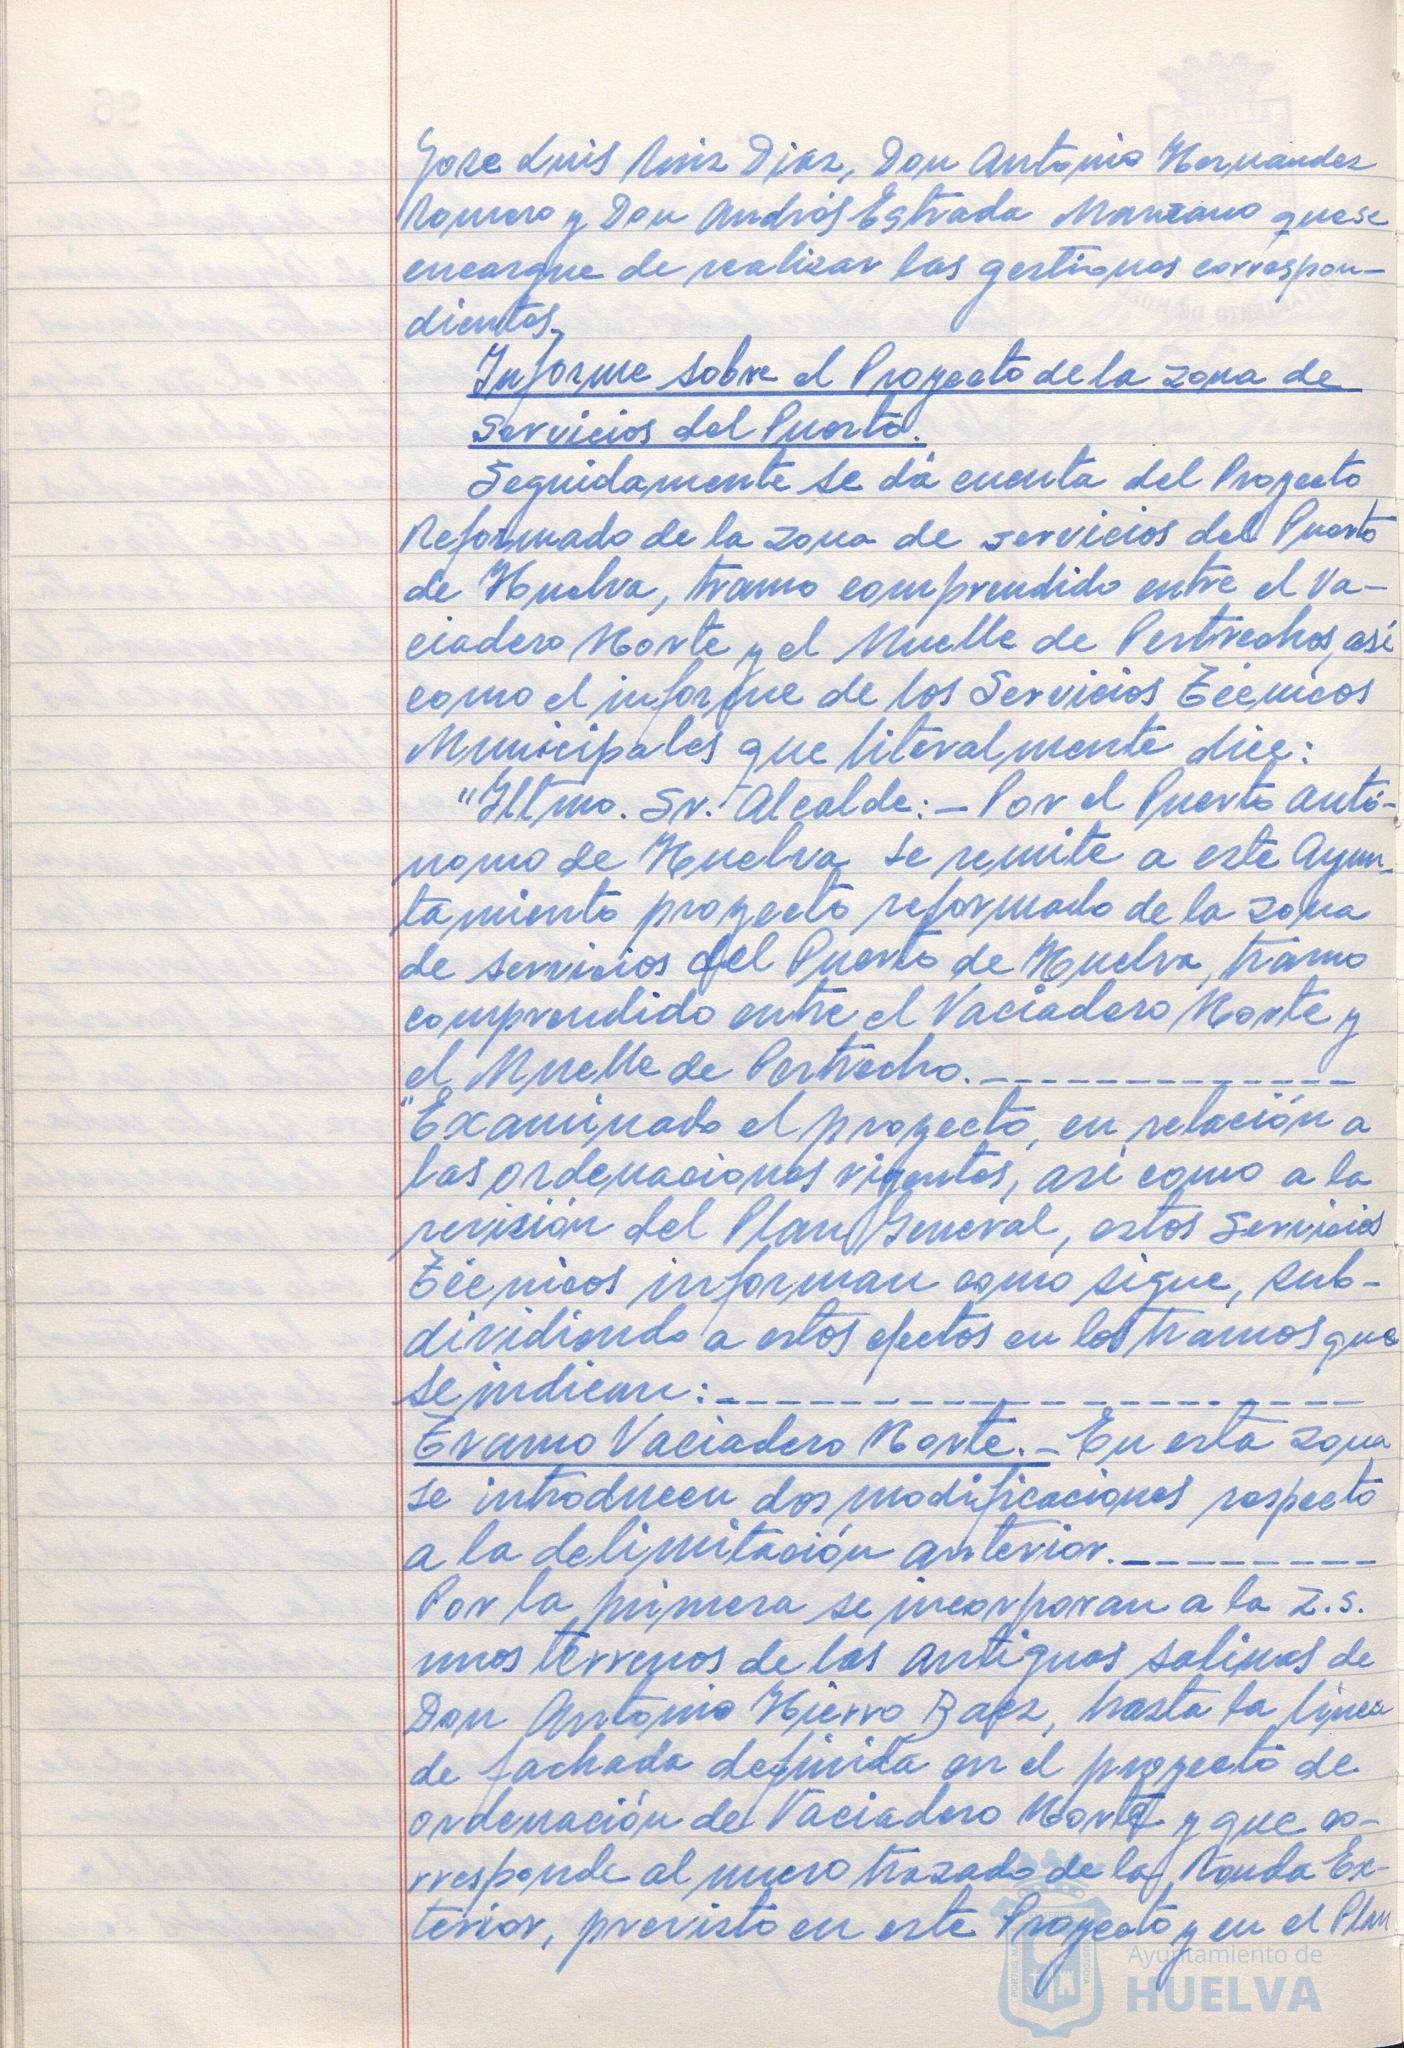 Jose Luis Ruiz Diaz, Don Antonio Hernandez
Romero y Don Andrés Estrada Manzano que se
encargue de realizar las gestiones correspon-
dientes.
Informe sobre el Proyecto de la zona de
Servicios del Puerto.
Seguidamente se dá cuenta del Proyecto
Reformado de la zona de servicios del Puerto
de Huelva, tramo comprendido entre el Va-
ciadero Norte y el Muelle de Pertrechos, así
como el informe de los Servicios Técnicos
Municipales que literalmente dice:
"Iltmo. Sr. Alcalde:- Por el Puerto Autó-
nomo de Huelva se remite a este Ayun-
tamiento proyecto reformado de la zona
de servicios del Puerto de Huelva, tramo
comprendido entre el Vaciadero Norte y
el Muelle de Pertrecho.
"Examinado el proyecto, en relación a
las ordenaciones vigentes, así como a la
revisión del Plan General, estos Servicios
Técnicos informan como sigue, sub-
dividiendo a estos efectos en los tramos que
se indican:
Tramo Vaciadero Norte.- En esta zona
se introducen dos modificaciones respecto
a la delimitación anterior.
Por la primera se incorporan a la Z.S.
unos terrenos de las antiguas salinas de
Don Antonio Hierro Baez, hasta la línea
de fachada definida en el proyecto de
ordenación de Vaciadero Norte y que co-
rresponde al nuevo trazado de la Ronda Ex-
terior, previsto en este Proyecto y en el Plan
Ayuntamiento de
HUELVA